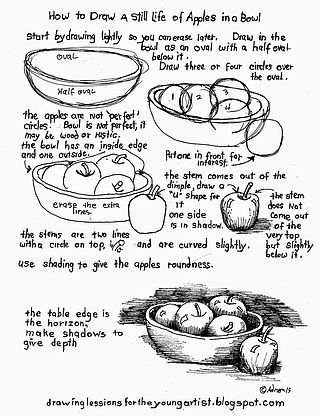 How to Draw a Still Life of Apples in a Bowl
Start by drawing lightly so you can erase later. Draw in the
bowl as an oval with a half oval
below it.
OVAL
Half OVAL
Draw three or four circles over
the oval.
1
2
3
4
the apples are not "perfect"
circles. Bowl is not perfect, it
may be wood or rustic.
the bowl has an inside edge
and one outside.
Put one in front for
interest.
erase the extra
lines.
the stem comes out of the
dimple, draw a
"U" shape for
it
one side
is in shadow.
the stem
does not
come out
of the
very top
but slightly
below it.
the stems are two lines
with a circle on top, and are curved slightly.
use shading to give the apples roundness.
the table edge is
the horizon,
make shadows to
give depth
drawinglessonsfortheyoungartist.blogspot.com